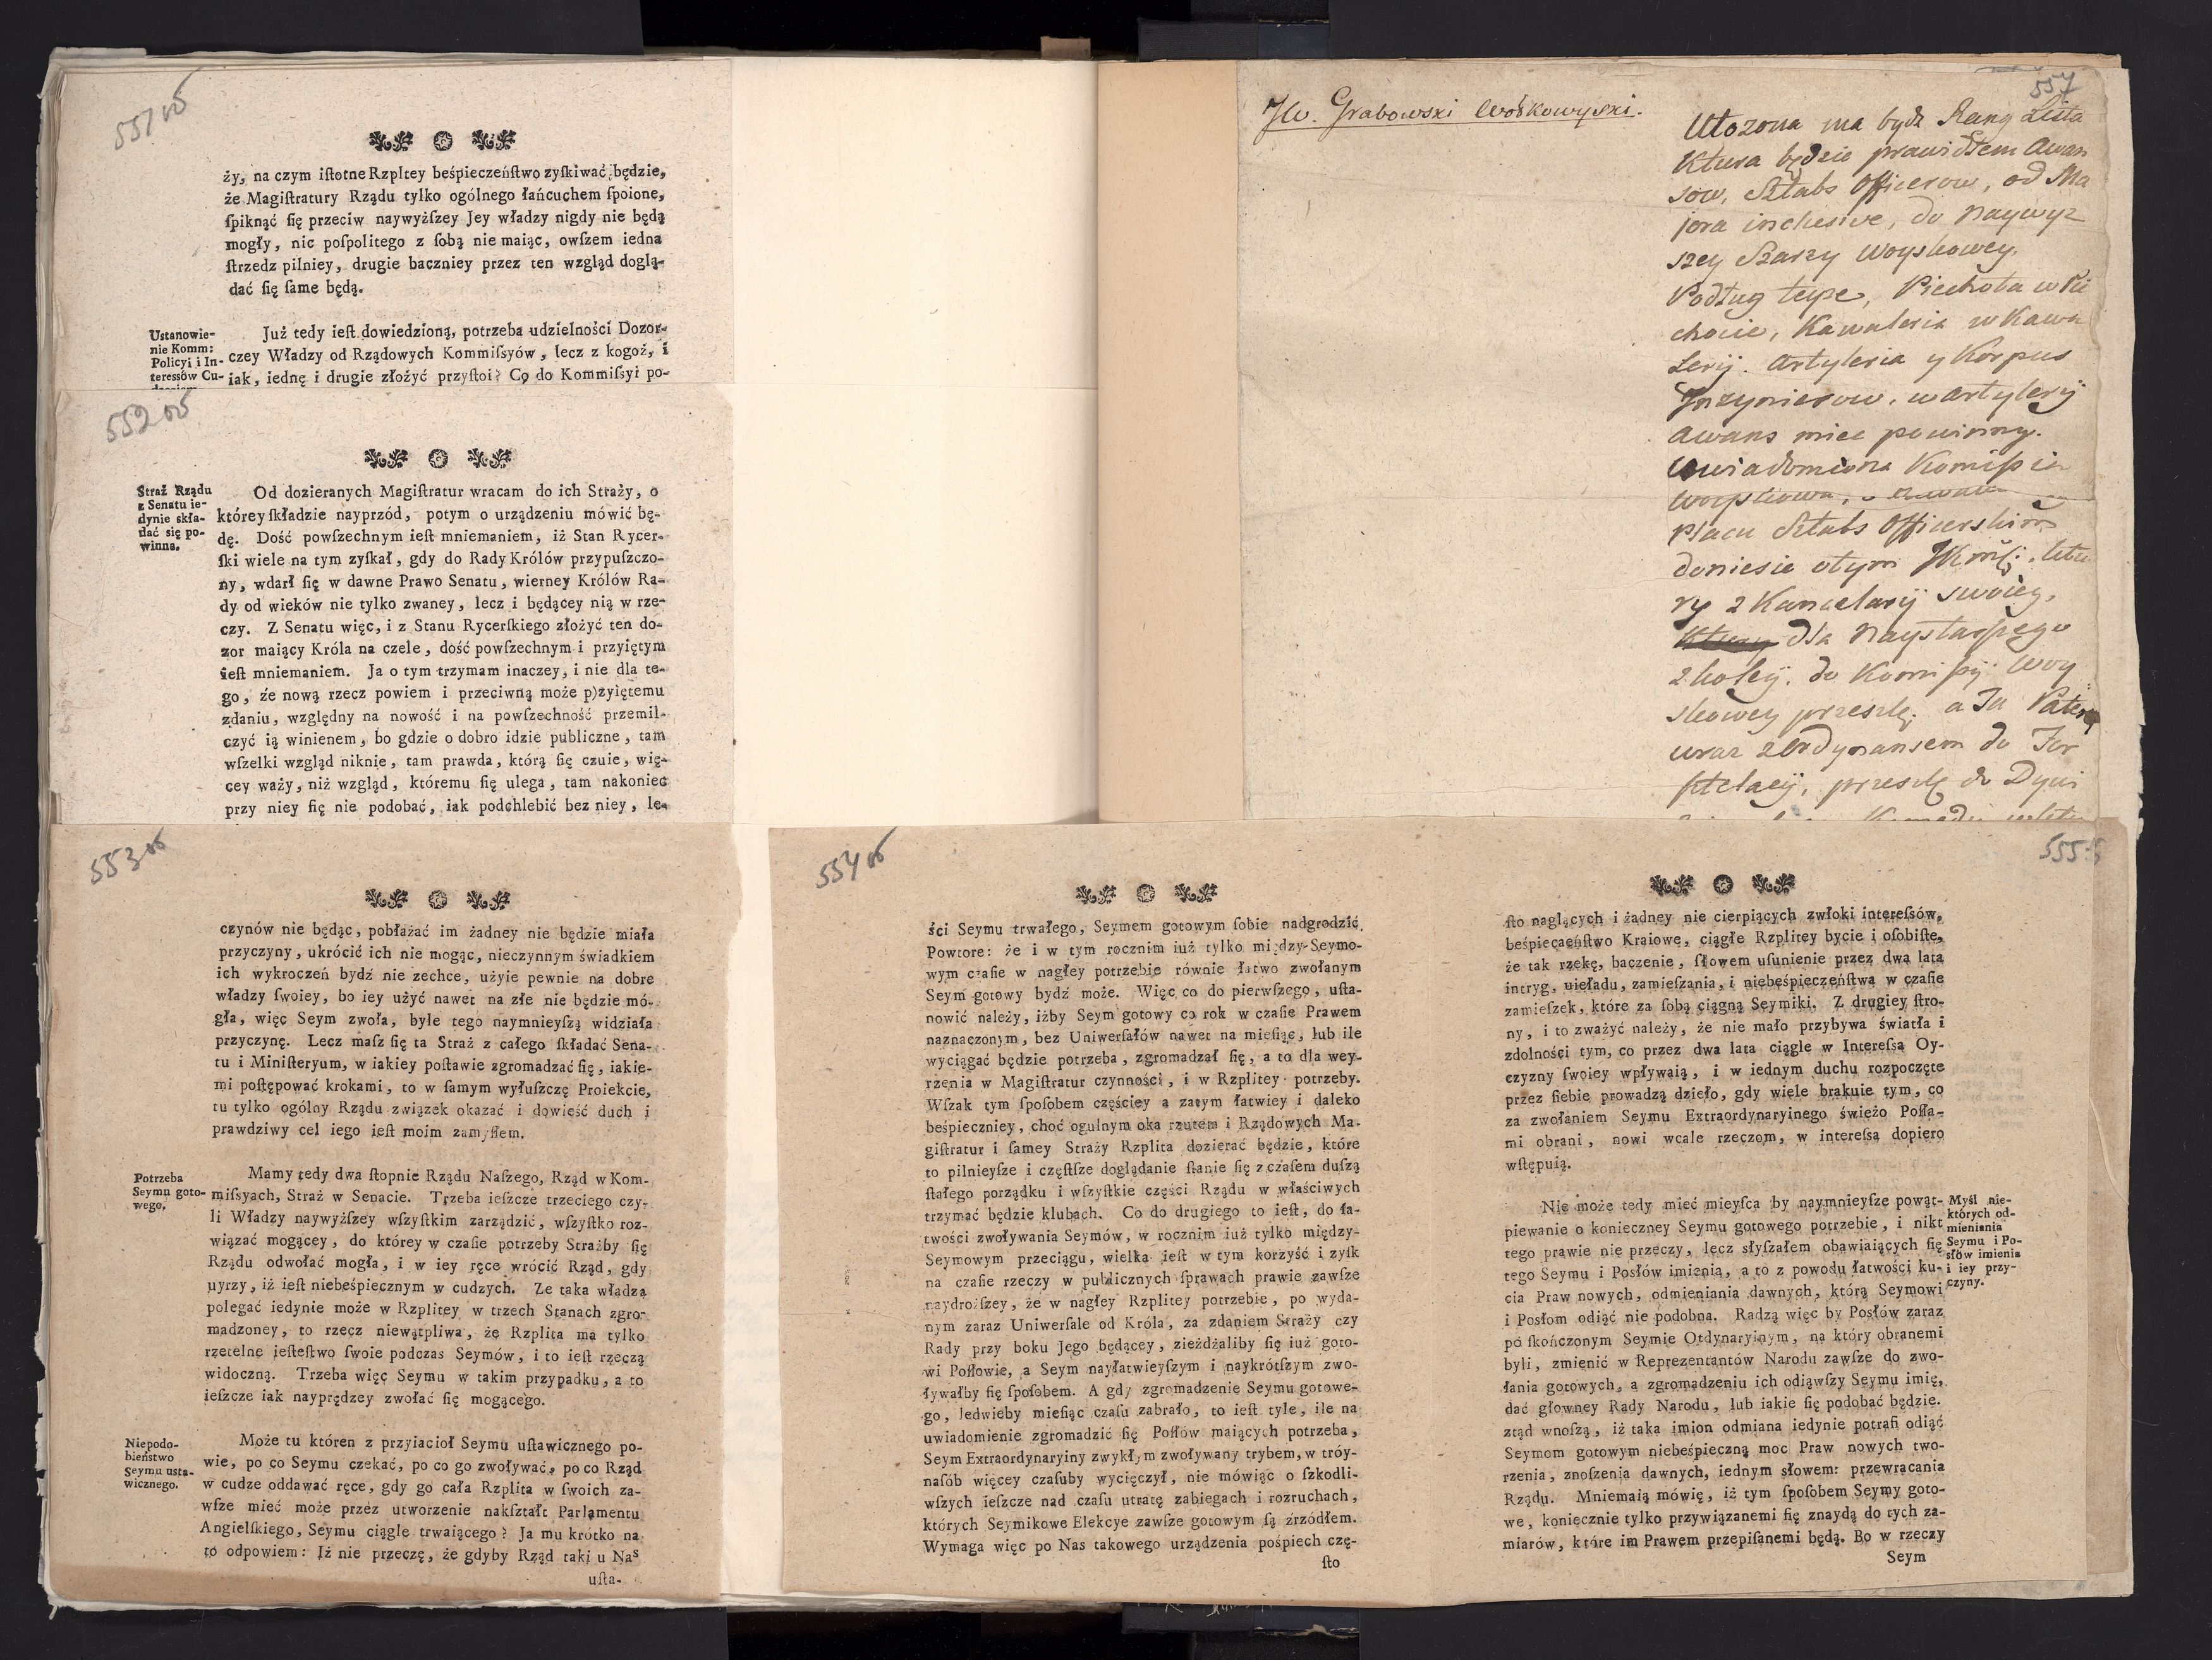 551 vo
ży, na czym iſtotne Rzpltey beśpieczeńſtwo zyſkiwać będzie,
że Magiſtratury Rządu tylko ogólnego łańcuchem ſpoione,
ſpiknąć ſię przeciw naywyżſzey Jey władzy nigdy nie będą
mogły, nic poſpolitego z ſobą nie maiąc, owſzem iedna
ſtrzedz pilniey, drugie baczniey przez ten wzgląd doglą-
dać ſię ſame będą.
Ustanowie-
nie Komm:
Policyi i In-
teressów Cu-
Już tedy ieſt dowiedzioną, potrzeba udzielności Dozor-
czey Władzy od Rządowych Kommiſsyów, lecz z kogoż, i
iak, iednę i drugie złożyć przyſtoi? Co do Kommiſsyi po-
552 vo
Straż Rządu
z Senatu ie-
dynie skła-
dać się po-
winna.
Od dozieranych Magiſtratur wracam do ich Straży, o
którey ſkładzie nayprzód, potym o urządzeniu mówić bę-
dę. Dość powſzechnym ieſt mniemaniem, iż Stan Rycer-
ſki wiele na tym zyſkał, gdy do Rady Królów przypuſzczo-
ny, wdarł ſię w dawne Prawo Senatu, wierney Królów Ra-
dy od wieków nie tylko zwaney, lecz i będącey nią w rze-
czy. Z Senatu więc, i z Stanu Rycerſkiego złożyć ten do-
zor maiący Króla na czele, dość powſzechnym i przyiętym
ieſt mniemaniem. Ja o tym trzymam inaczey, i nie dla te-
go, że nową rzecz powiem i przeciwną może p)zyiętemu
zdaniu, względny na nowość i na powſzechność przemil-
czyć ią winienem, bo gdzie o dobro idzie publiczne, tam
wſzelki wzgląd niknie, tam prawda, którą ſię czuie, wię-
cey waży, niż wzgląd, któremu ſię ulega, tam nakoniec
przy niey ſię nie podobać, iak podchlebić bez niey, le-
553 vo
czynów nie będąc, pobłażać im żadney nie będzie miała
przyczyny, ukrócić ich nie mogąc, nieczynnym świadkiem
ich wykroczeń bydź nie zechce, użyie pewnie na dobre
władzy ſwoiey, bo iey użyć nawet na złe nie będzie mó-
gła, więc Seym zwoła, byle tego naymnieyſzą widziała
przyczynę. Lecz maſz ſię ta Straż z całego ſkładać Sena-
tu i Miniſteryum, w iakiey poſtawie zgromadzać ſię, iakie-
mi poſtępować krokami, to w ſamym wyłuſzczę Proiekcie,
tu tylko ogólny Rządu związek okazać i dowieść duch i
prawdziwy cel iego ieſt moim zamyſłem.
Potrzeba
Seymu goto-
wego.
Mamy tedy dwa ſtopnie Rządu Naſzego, Rząd w Kom-
miſsyach, Straż w Senacie. Trzeba ieſzcze trzeciego czy-
li Władzy naywyżſzey wſzyſtkim zarządzić, wſzyſtko roz-
wiązać mogącey, do którey w czaſie potrzeby Straźby ſię
Rządu odwołać mogła, i w iey ręce wrócić Rząd, gdy
uyrzy, iż ieſt niebeśpiecznym w cudzych. Ze taka władza
polegać iedynie może w Rzplitey w trzech Stanach zgro-
madzoney, to rzecz niewątpliwa, że Rzplita ma tylko
rzetelne ieſteſtwo ſwoie podczas Seymów, i to ieſt rzeczą
widoczną. Trzeba więc Seymu w takim przypadku, a to
ieſzcze iak nayprędzey zwołać ſię mogącego.
Niepodo-
bieństwo
Seymu usta-
wicznego.
Może tu któren z przyiacioł Seymu uſtawicznego po-
wie, po co Seymu czekać, po co go zwoływać, po co Rząd
w cudze oddawać ręce, gdy go cała Rzplita w ſwoich za-
wſze mieć może przez utworzenie nakſztałt Parlamentu
Angielſkiego, Seymu ciągle trwaiącego? Ja mu krótko na
to odpowiem: Iż nie przeczę, że gdyby Rząd taki u Nas
uſta-
554 vo
ści Seymu trwałego, Seymem gotowym ſobie nadgrodzić.
Powtore: że i w tym rocznim iuż tylko między-Seymo-
wym czaſie w nagłey potrzebie równie łatwo zwołanym
Seym gotowy bydź może. Więc co do pierwſzego, uſta-
nowić należy, iżby Seym gotowy co rok w czaſie Prawem
naznaczonym, bez Uniwerſałów nawet na mieſiąc, lub ile
wyciągać będzie potrzeba, zgromadzał ſię, a to dla wey-
rzenia w Magiſtratur czynności, i w Rzplitey potrzeby.
Wſzak tym ſpoſobem częściey a zatym łatwiey i daleko
beśpieczniey, choć ogulnym oka rzutem i Rządowych Ma-
giſtratur i ſamey Straży Rzplita dozierać będzie, które
to pilnieyſze i częſtſze doglądanie ſtanie ſię z czaſem duſzą
ſtałego porządku i wſzyſtkie części Rządu w właściwych
trzymać będzie klubach. Co do drugiego to ieſt, do ła-
twości zwoływania Seymów, w rocznim iuż tylko między-
Seymowym przeciągu, wielka ieſt w tym korzyść i zyſk
na czaſie rzeczy w publicznych ſprawach prawie zawſze
naydroiſzey, że w nagłey Rzplitey potrzebie, po wyda-
nym zaraz Uniwerſale od Króla, za zdaniem Straży czy
Rady przy boku Jego będącey, zieżdżaliby ſię iuż goto-
wi Poſłowie, a Seym nayłatwieyſzym i naykrótſzym zwo-
ływałby ſię ſpoſobem. A gdy zgromadzenie Seymu gotowe-
go, ledwieby mieſiąc czaſu zabrało, to ieſt tyle, ile na
uwiadomienie zgromadzić ſię Poſłów maiących potrzeba,
Seym Extraordynaryiny zwykłym zwoływany trybem, w tróy-
naſób więcey czaſuby wycięczył, nie mówiąc o ſzkodli-
wſzych ieſzcze nad czaſu utratę zabiegach i rozruchach,
których Seymikowe Elekcye zawſze gotowym ſą źrzódłem.
Wymaga więc po Nas takowego urządzenia pośpiech czę-
ſto
555
ſto naglących i żadney nie cierpiących zwłoki intereſsów,
beśpiecaeńſtwo Kraiowe, ciągłe Rzplitey bycie i oſobiſte,
że tak rzekę, baczenie, ſłowem uſunienie przez dwa lata
intryg, nieładu, zamieſzania, i niebeśpieczeńſtwa w czaſie
zamieſzek, które za ſobą ciągną Seymiki. Z drugiey ſtro-
ny, i to zważyć należy, że nie mało przybywa światła i
zdolności tym, co przez dwa lata ciągle w Intereſsa Oy-
czyzny ſwoiey wpływaią, i w iednym duchu rozpoczęte
przez ſiebie prowadzą dzieło, gdy wiele brakuie tym, co
za zwołaniem Seymu Extraordynaryinego świeżo Poſła-
mi obrani, nowi wcale rzeczom, w intereſsa dopiero
wſtępuią.
Nie może tedy mieć mieyſca by naymnieyſze powąt-
piewanie o konieczney Seymu gotowego potrzebie, i nikt
tego prawie nie przeczy, lecz słyſzałem obawiaiących ſię
tego Seymu i Posłów imienia, a to z powodu łatwości ku-
cia Praw nowych, odmieniania dawnych, którą Seymowi
i Posłom odiąć nie podobna. Radzą więc by Posłów zaraz
po ſkończonym Seymie Ordynaryinym, na który obranemi
byli, zmienić w Reprezentantów Narodu zawſze do zwo-
łania gotowych, a zgromadzeniu ich odiąwſzy Seymu imię,
dać głowney Rady Narodu, lub iakie ſię podobać będzie.
ztąd wnoſzą, iż taka imion odmiana iedynie potrafi odiąć
Seymom gotowym niebeśpieczną moc Praw nowych two-
rzenia, znoſzenia dawnych, iednym słowem: przewracania
Rządu. Mniemaią mówię, iż tym ſpoſobem Seymy goto-
we, koniecznie tylko przywiązanemi ſię znaydą do tych za-
miarów, które im Prawem przepiſanemi będą. Bo w rzeczy
Seym
Myśl nie-
których od-
mieniania
Seymu i Po-
słów imienia
i iey przy-
czyny.
557
JW. Grabowski Wołkowyski.
Ułozona ma bydz Rang Lista
Ktura będzie prawidłem Awan
sow, Sztabs Officerow, od Ma
jora inclusive, do naywyz
szey Szarzy Woyskowey.
Podług teyze, Piechota w Pie
chocie, Kawaleria w Kawa
Lerij. Artyleria y Korpus
Jnzynierow, w Artylerij
Awans miec powinny.
Uwiadomiona Komissia
Placu Sztabs Officerskim
doniesie otym JKmsci.
ry z Kancelarij swoiey,
dla Naystarszego
z koleij, do Komissij Woy
skowey przeszle; a Ta Patent
wraz z Ordynansem do
przeszle do Dywi